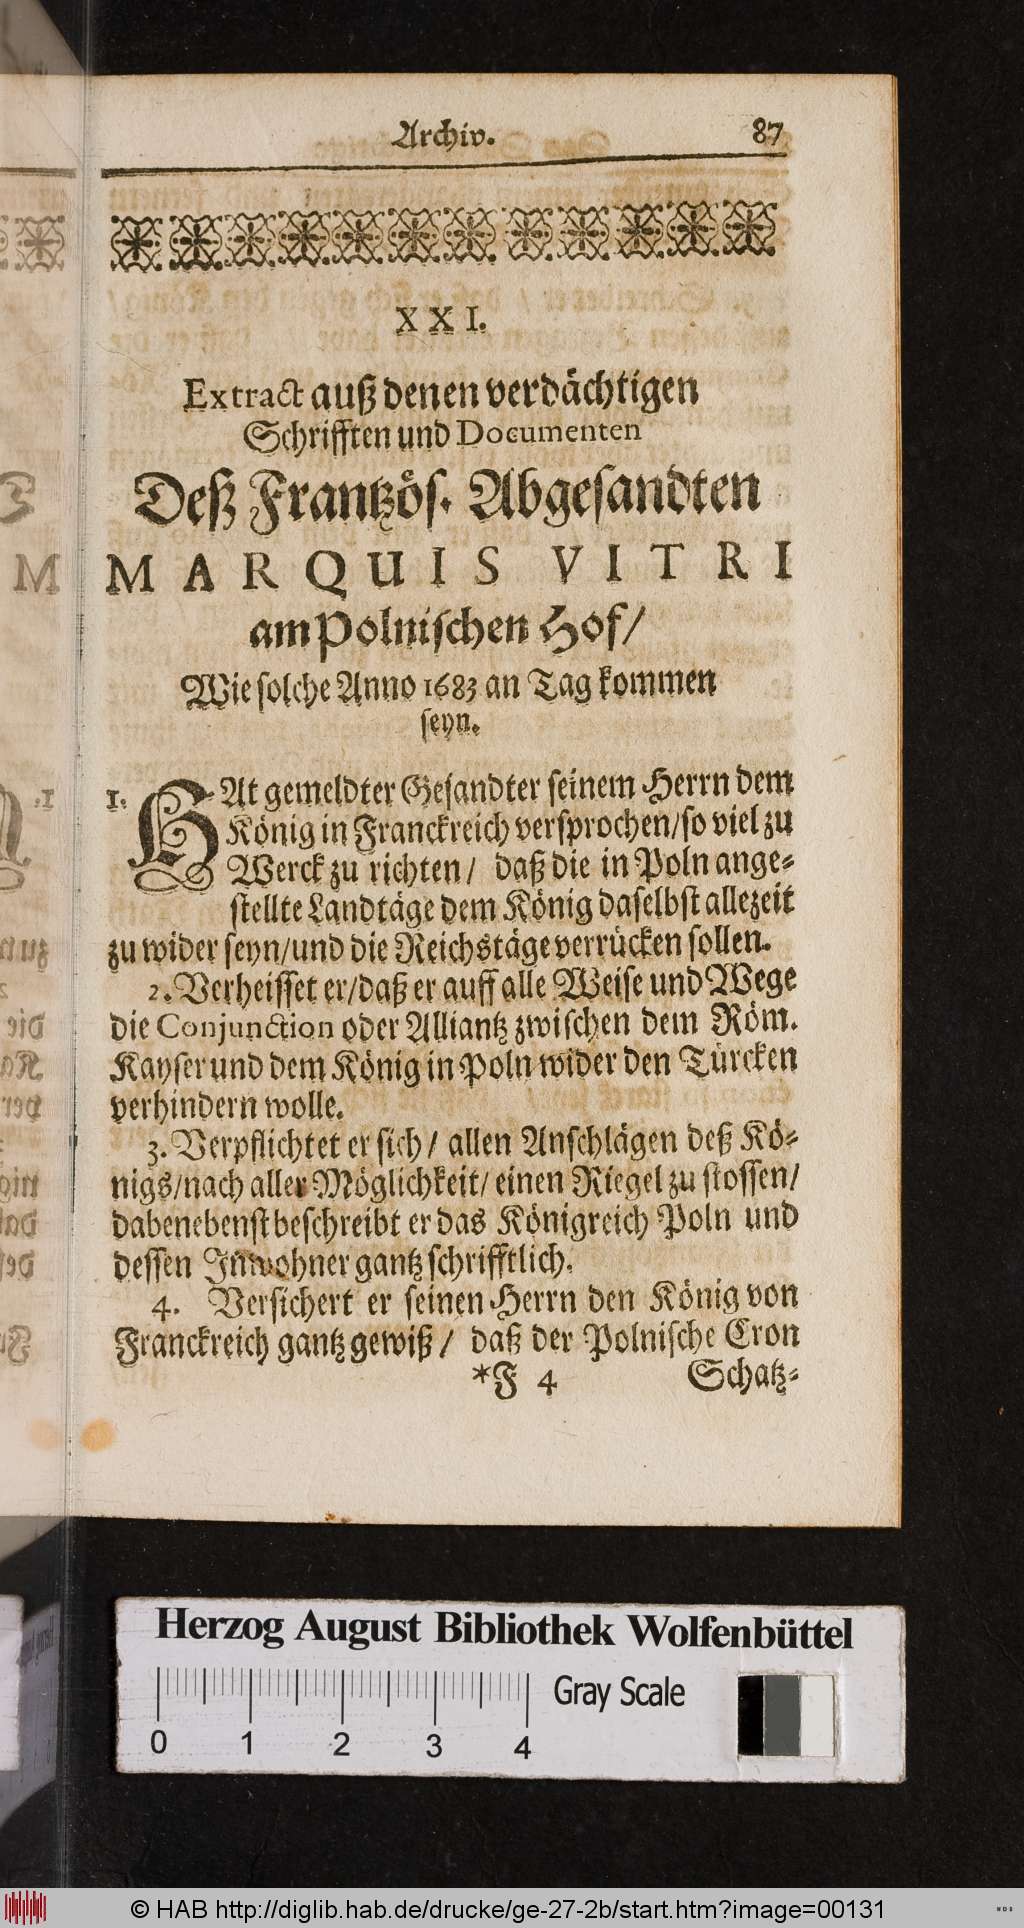 Archiv. 87
XXI.
Extract auß denen verdächtigen
Schrifften und Documenten
Deß Frantzös. Abgesandten
MARQUIS VITRI
am Polnischen Hof/
Wie solche Anno 1683 an Tag kommen
seyn.
1. HAt gemeldter Gesandter seinem Herrn dem
König in Franckreich versprochen/so viel zu
Werck zu richten/ daß die in Poln ange-
stellte Landtäge dem König daselbst allezeit
zu wider seyn/und die Reichstäge verrücken sollen.
2. Verheisset er/daß er auff alle Weise und Wege
die Conjunction oder Alliantz zwischen dem Röm.
Kayser und dem König in Poln wider den Türcken
verhindern wolle.
3. Verpflichtet er sich/ allen Anschlägen deß Kö-
nigs/nach aller Möglichkeit/ einen Riegel zu stossen/
dabenebenst beschreibt er das Königreich Poln und
dessen Inwohner gantz schrifftlich.
4. Versichert er seinen Herrn den König von
Franckreich gantz gewiß/ daß der Polnische Cron
*F 4 Schatz-
Herzog August Bibliothek Wolfenbüttel
Gray Scale
0 1 2 3 4
© HAB http://diglib.hab.de/drucke/ge-27-2b/start.htm?image=00131